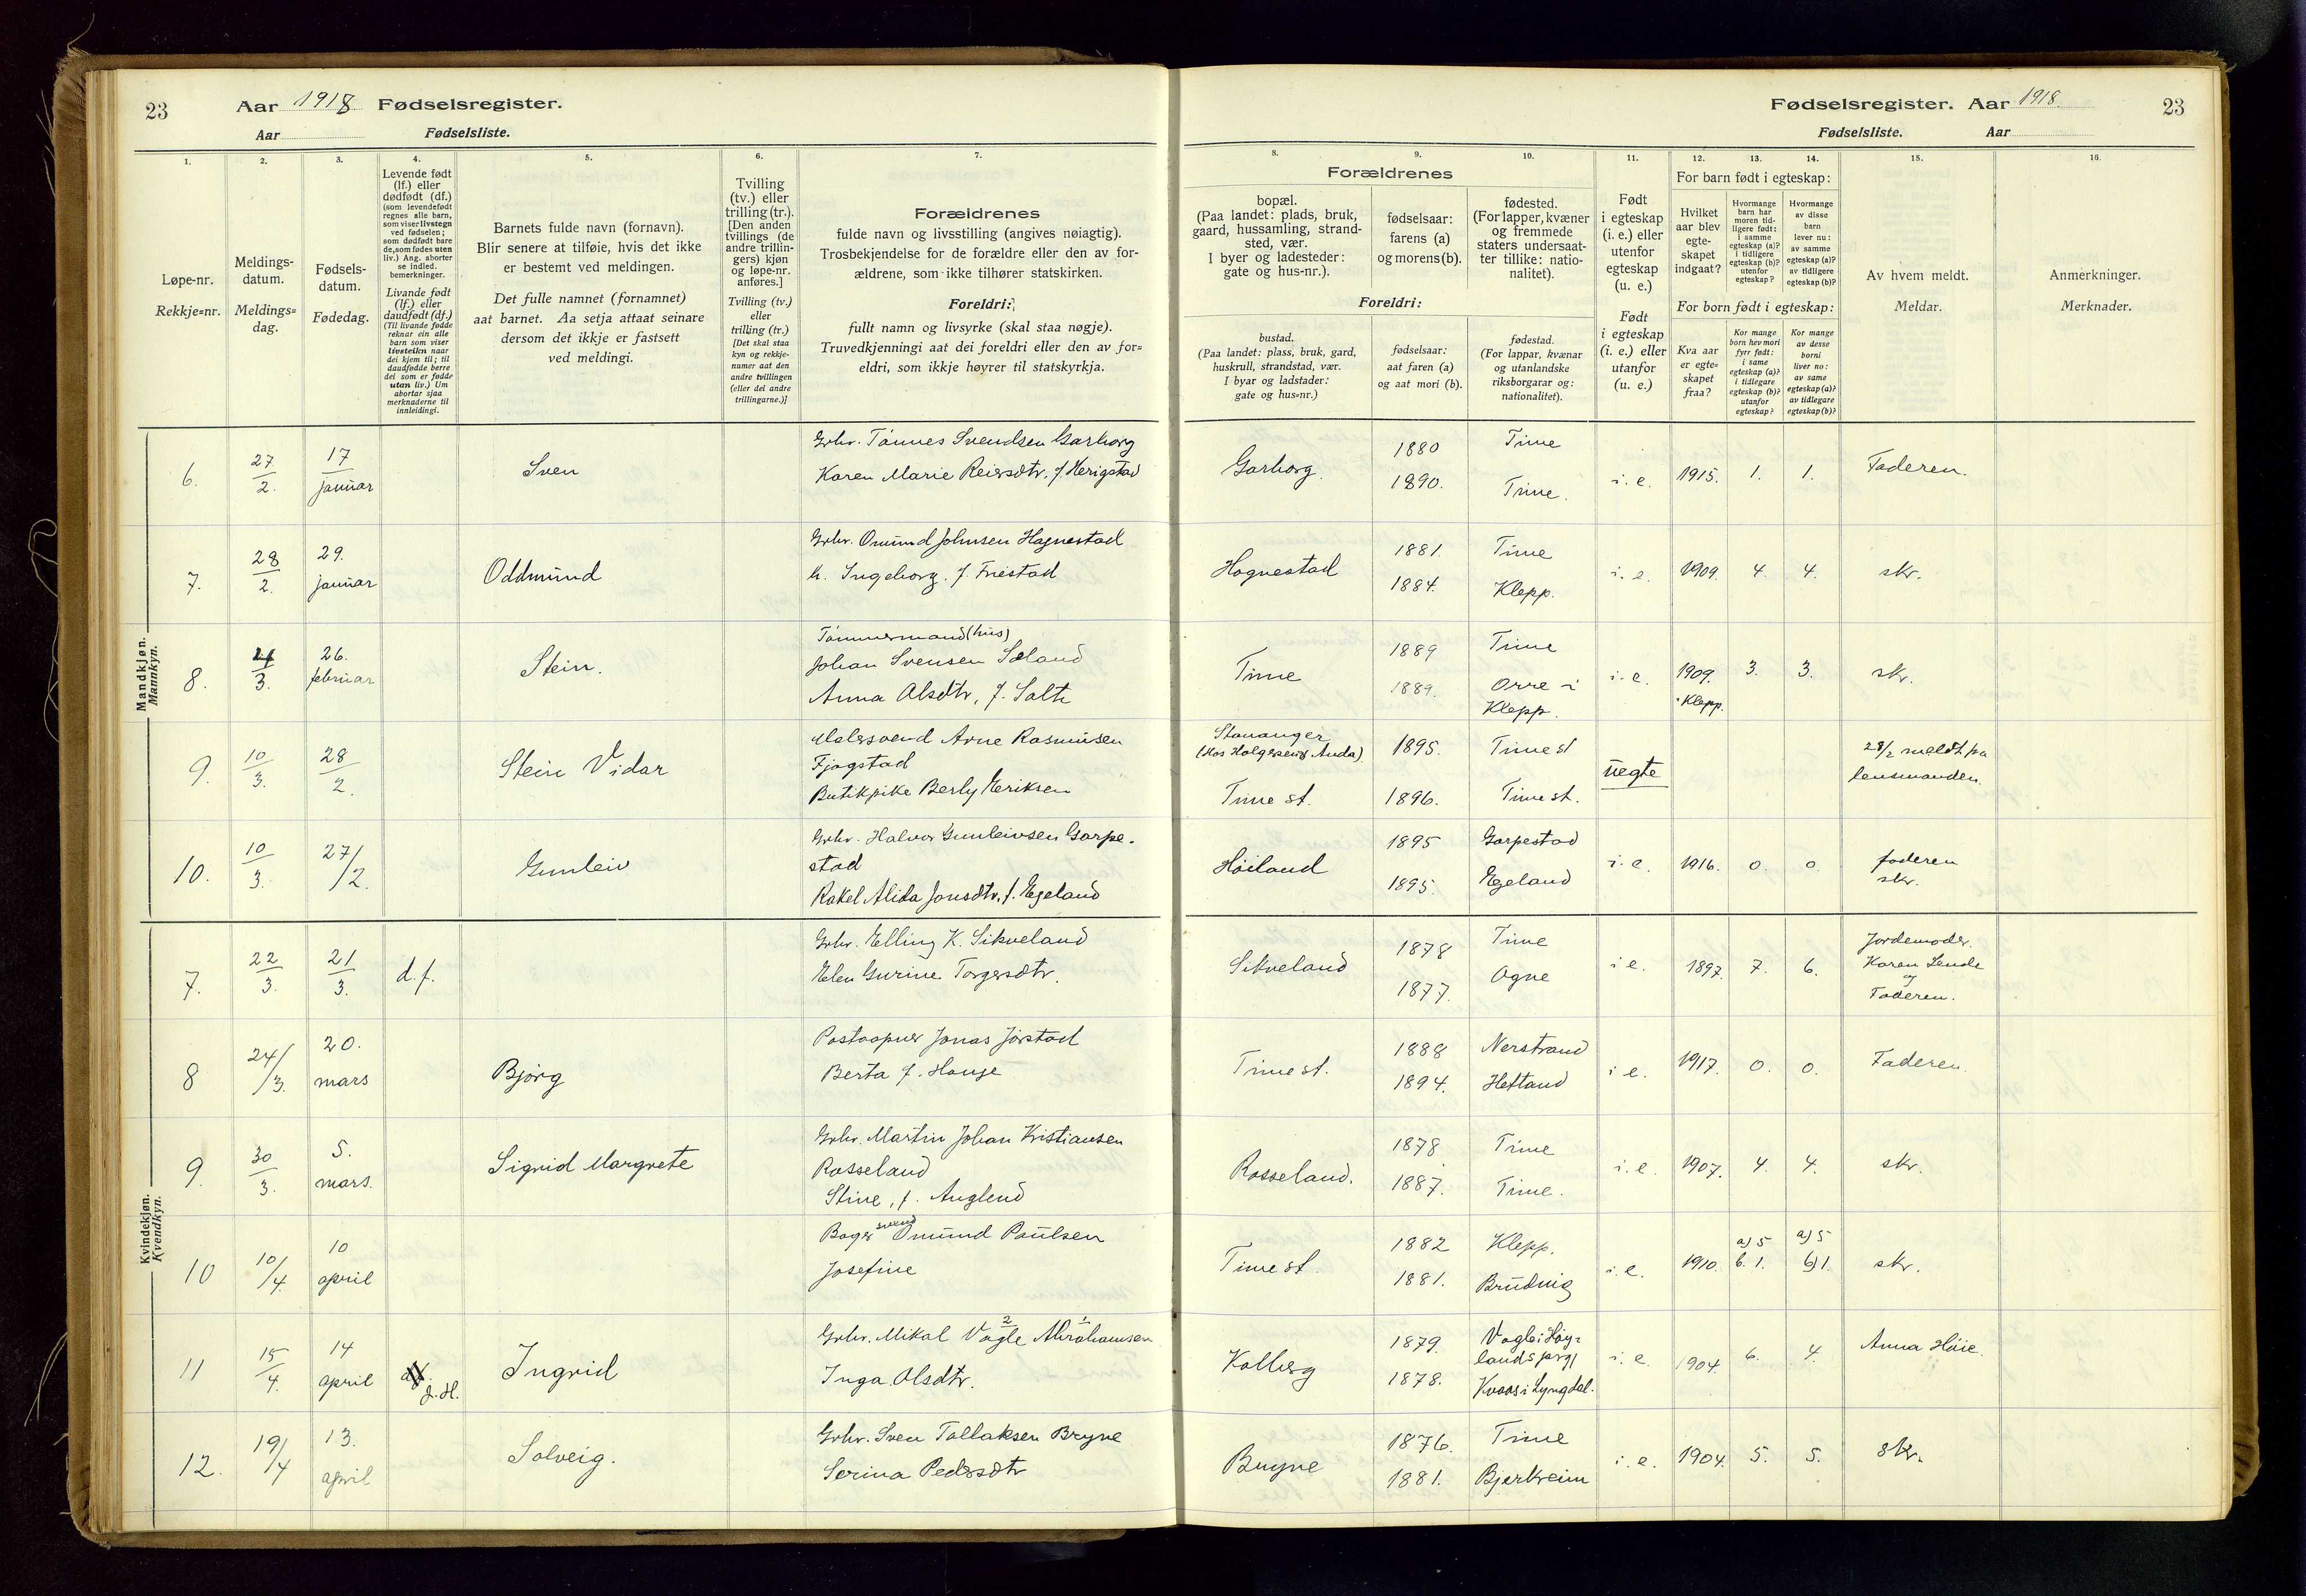 23
Aar 1918 Fødselsregister.
Aar
Fødselsliste.
Fødselsregister. Aar 1918.
23
Fødselsliste. Aar
1.
2.
3.
4.
5.
6.
7.
Løpe-nr.
Rekkje=nr.
Meldings-
datum.
Meldings=
dag.
Fødsels-
datum.
Fødedag.
Levende født
(lf.) eller
dødfødt (df.)
(som levendefødt
regnes alle barn,
som viser livstegn
ved fødselen;
som dødfødt bare
de, som fødes uten
liv.) Ang. aborter
se indled.
bemerkninger.
Livande født
(lf.) eller
daudfødt (df.)
(Til livande fødde
reknar ein alle
barn som viser
livsteikn naar
dei kjem til; til
daudfødde berre
dei som er fødde
utan liv.) Um
abortar sjaa
merknaderne til
innleidingi.
Barnets fulde navn (fornavn).
Blir senere at tilføie, hvis det ikke
er bestemt ved meldingen.
Det fulle namnet (fornamnet)
aat barnet. Aa setja attaat seinare
dersom det ikkje er fastsett
ved meldingi.
Tvilling
(tv.) eller
trilling (tr.).
[Den anden
tvillings (de
andre trillin-
gers) kjøn
og løpe-nr.
anføres.]
Tvilling (tv.)
eller
trilling (tr.)
[Det skal staa
kyn og rekkje-
numer aat den
andre tvillingen
(eller dei andre
trillingarne.)]
Forældrenes
fulde navn og livsstilling (angives nøiagtig).
Trosbekjendelse for de forældre eller den av for-
ældrene, som ikke tilhører statskirken.
Foreldri:
fullt namn og livsyrke (skal staa nøgje).
Truvedkjenningi aat dei foreldri eller den av for=
eldri, som ikkje høyrer til statskyrkja.
8.
9.
10.
11.
12.
13.
14.
15.
16.
Forældrenes
bopæl.
(Paa landet: plads, bruk,
gaard, hussamling, strand-
sted, vær.
I byer og ladesteder:
gate og hus-nr.).
fødselsaar:
farens (a)
og morens (b).
fødested.
(For lapper, kvæner
og fremmede
staters undersaat-
ter tillike: natio-
nalitet).
Foreldri:
bustad.
(Paa landet: plass, bruk, gard,
huskrull, strandstad, vær.
I byar og ladstader:
gate og hus=nr.)
fødselsaar:
aat faren (a)
og aat mori (b).
fødestad.
(For lappar, kvænar
og utanlandske
riksborgarar og:
nationalitet).
Født
i egteskap
(i. e.) eller
utenfor
egteskap
(u. e.)
Født
i egteskap
(i. e.) eller
utanfor
(u. e.)
For barn født i egteskap:
Hvilket
aar blev
egte-
skapet
indgaat?
Hvormange
barn har
moren tid-
ligere født:
i samme
egteskap (a)?
i tidligere
egteskap (b)?
utenfor
egteskap?
Hvormange
av disse
barn
lever nu:
av samme
egteskap (a)?
av tidligere
egteskap (b)?
For born født i egteskap:
Kva aar
er egte=
skapet
fraa?
Kor mange
born hev mori
fyrr født:
i same
egteskap (a)?
i tidlegare
egteskap (b)?
utanfor
egteskap?
Kor mange
av desse
borni
liver no:
av same
egteskap (a)?
av tidlegare
egteskap (b)?
Av hvem meldt.
Meldar.
Anmerkninger.
Merknader.
Mandkjøn.
Mannkyn.
6. 27/2. 17 januar Sven Grbr. Tønnes Svendsen Garborg
Karen Marie Reiersdtr. f. Herigstad
Garborg. 1880 Time
1890. Time. i. e. 1915. 1. 1. Faderen.
7. 28/2. 29. januar Oddmund Grbr. Omund Johnsen Hognestad
h. Ingeborg. f. Friestad
Hognestad 1881. Time
1884. Klepp. i. e. 1909. 4. 4. skr.
8. /3. 26. februar Stein. Tømmermand (hus)
Johan Svensen Sæland
Anna Olsdtr, f. Salte
Time 1889 Time
1889. Orre i
Klepp. i. e. 1909. Klepp. 3. 3. skr.
9. 10/3. 28/2. Stein Vidar Malersvend Arne Rasmusen
Fjogstad
Butikpike Berly Eriksen
Stavanger
(Hos Holgersens Anda) 1895. Time st
Time st. 1896. Time st. uegte 28/2 meldt paa
lensmanden.
10. 10/3. 27/2. Gunleiv Grbr. Halvor Gunleivsen Garpe-
stad
Rakel Alida Jonsdtr. f. Egeland
Høiland 1895 Garpestad
1895. Egeland i. e. 1916. 0. 0 faderen
skr.
Kvindekjøn.
Kvendkyn.
7. 22/3. 21/3. d.f. Grbr. Elling K. Sikveland
Elen Gurine Torgersdtr.
Sikveland 1878 Time
1877. Ogne i e. 1897. 7. 6. Jordemoder.
Karen Lende
og
Faderen.
8 24/3. 20. mars Bjørg Postaapner Jonas Jørstad
Berta f. Hauge
Time st. 1888 Nerstrand
1894. Hetland i e. 1917. 0. 0. Faderen.
9. 30/3. 5. mars. Sigrid Margrete Grbr. Martin Johan Kristiansen
Rosseland
Stine, f. Anglend
Rosseland. 1878 Time
1887. Time. i. e. 1907. 4. 4. skr.
10 10/4. 10 april Bager svend Omund Paulsen
Josefine
Time st. 1882 Klepp.
1881. Brudvig i. e. 1910. a) 5 b. 1. a) 5 b) 1. skr.
11 15/4. 14 april J. H. Ingrid Grbr. Mikal Vagle 2 Abrahamsen 1
Inga Olsdtr.
Kalberg 1879. Vagle i Høy-
lands prgj
1878. Kvaas i Lyngdal. i. e. 1904. 6. 4. Anna Høie.
12. 19/4 13. april Solveig. Grbr. Sven Tollaksen Bryne
Serina Pedersdtr
Bryne 1876. Time
1881. Bjerkreim i. e. 1904. 5. 5. skr.